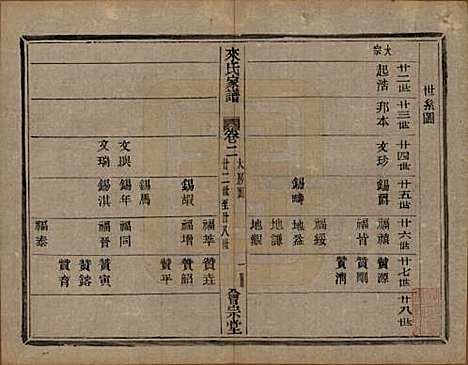 世系圖
廿二世 廿三世 廿四世 廿五世 廿六世 廿七世 廿八世
大宗
起浩 邦本 文珍 錫爵 福禎 贊源
福情 贊剛
福綏 贊清
錫疇 地益
地謙
地
來氏家譜 卷二 大房圖 廿二世至廿八世 一 會宗堂
福萃 贊垚
錫嘏 福增 贊紹
贊平
錫馬
文煥 錫年 福同
文瑞 錫淇 福晉 贊寅
贊鎔
福泰 贊育